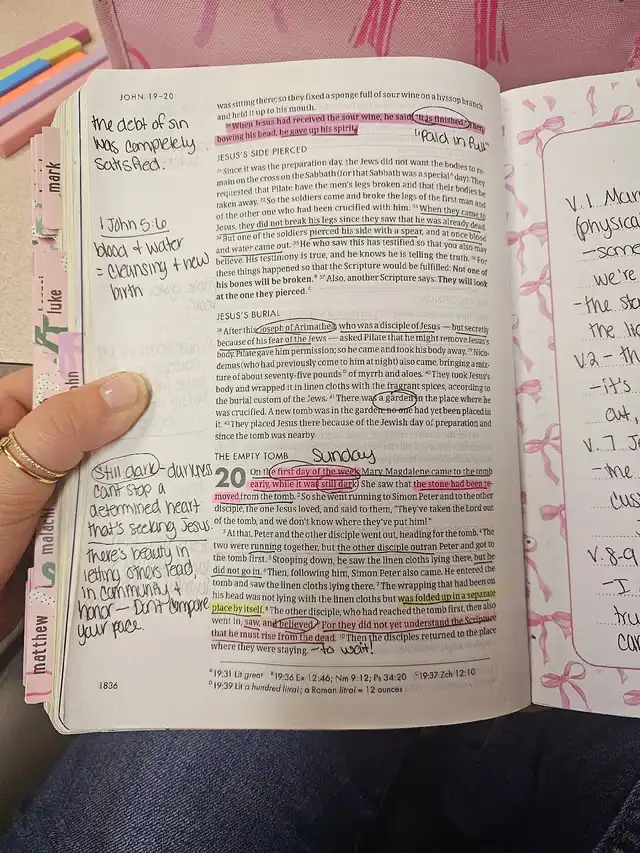 JOHN 19–20
the debt of sin
was completely
satisfied.
1 John 5:6
blood + water
= cleansing + new
birth
Still dark - darkness
cant stop a
determined heart
that's seeking Jesus.
There's beauty in
letting others lead,
in community +
honor — Don't compare
your pace.
mark
luke
john
malachi
matthew
was sitting there; so they fixed a sponge full of sour wine on a hyssop branch
and held it up to his mouth.
30 When Jesus had received the sour wine, he said, "It is finished." Then,
bowing his head, he gave up his spirit.
"paid in full"
JESUS'S SIDE PIERCED
31 Since it was the preparation day, the Jews did not want the bodies to re-
main on the cross on the Sabbath (for that Sabbath was a special A day). They
requested that Pilate have the men's legs broken and that their bodies be
taken away. 32 So the soldiers came and broke the legs of the first man and
of the other one who had been crucified with him. 33 When they came to
Jesus, they did not break his legs since they saw that he was already dead.
34 But one of the soldiers pierced his side with a spear, and at once blood
and water came out. 35 He who saw this has testified so that you also may
believe. His testimony is true, and he knows he is telling the truth. 36 For
these things happened so that the Scripture would be fulfilled: Not one of
his bones will be broken. B 37 Also, another Scripture says: They will look
at the one they pierced. C
JESUS'S BURIAL
38 After this, Joseph of Arimathea, who was a disciple of Jesus — but secretly
because of his fear of the Jews — asked Pilate that he might remove Jesus's
body. Pilate gave him permission; so he came and took his body away. 39 Nico-
demus (who had previously come to him at night) also came, bringing a mix-
ture of about seventy-five pounds D of myrrh and aloes. 40 They took Jesus's
body and wrapped it in linen cloths with the fragrant spices, according to
the burial custom of the Jews. 41 There was a garden in the place where he
was crucified. A new tomb was in the garden; no one had yet been placed in
it. 42 They placed Jesus there because of the Jewish day of preparation and
since the tomb was nearby.
THE EMPTY TOMB Sunday
20 On the first day of the week Mary Magdalene came to the tomb
early, while it was still dark. She saw that the stone had been re-
moved from the tomb. 2 So she went running to Simon Peter and to the other
disciple, the one Jesus loved, and said to them, "They've taken the Lord out
of the tomb, and we don't know where they've put him!"
3 At that, Peter and the other disciple went out, heading for the tomb. 4 The
two were running together, but the other disciple outran Peter and got to
the tomb first. 5 Stooping down, he saw the linen cloths lying there, but he
did not go in. 6 Then, following him, Simon Peter also came. He entered the
tomb and saw the linen cloths lying there. 7 The wrapping that had been on
his head was not lying with the linen cloths but was folded up in a separate
place by itself. 8 The other disciple, who had reached the tomb first, then also
went in, saw, and believed. 9 For they did not yet understand the Scripture
that he must rise from the dead. 10 Then the disciples returned to the place
where they were staying. - to wait!
A 19:31 Lit great B 19:36 Ex 12:46; Nm 9:12; Ps 34:20 C 19:37 Zch 12:10
D 19:39 Lit a hundred litrai; a Roman litrai = 12 ounces
1836
V. 1 Mary
(physical
we're
V.2 - th
- it's
out,
V. 7 J
V. 8-9
- I